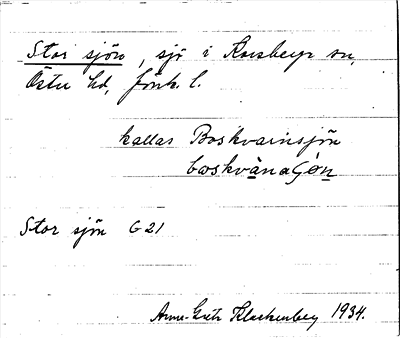 Stor sjön, sjö i Korsberga sn,
Östra hd, Jönk. l.
kallas Boskvarnsjön
boskvànaʃön
Stor sjön G 21
Anna-Greta Klackenberg 1934.